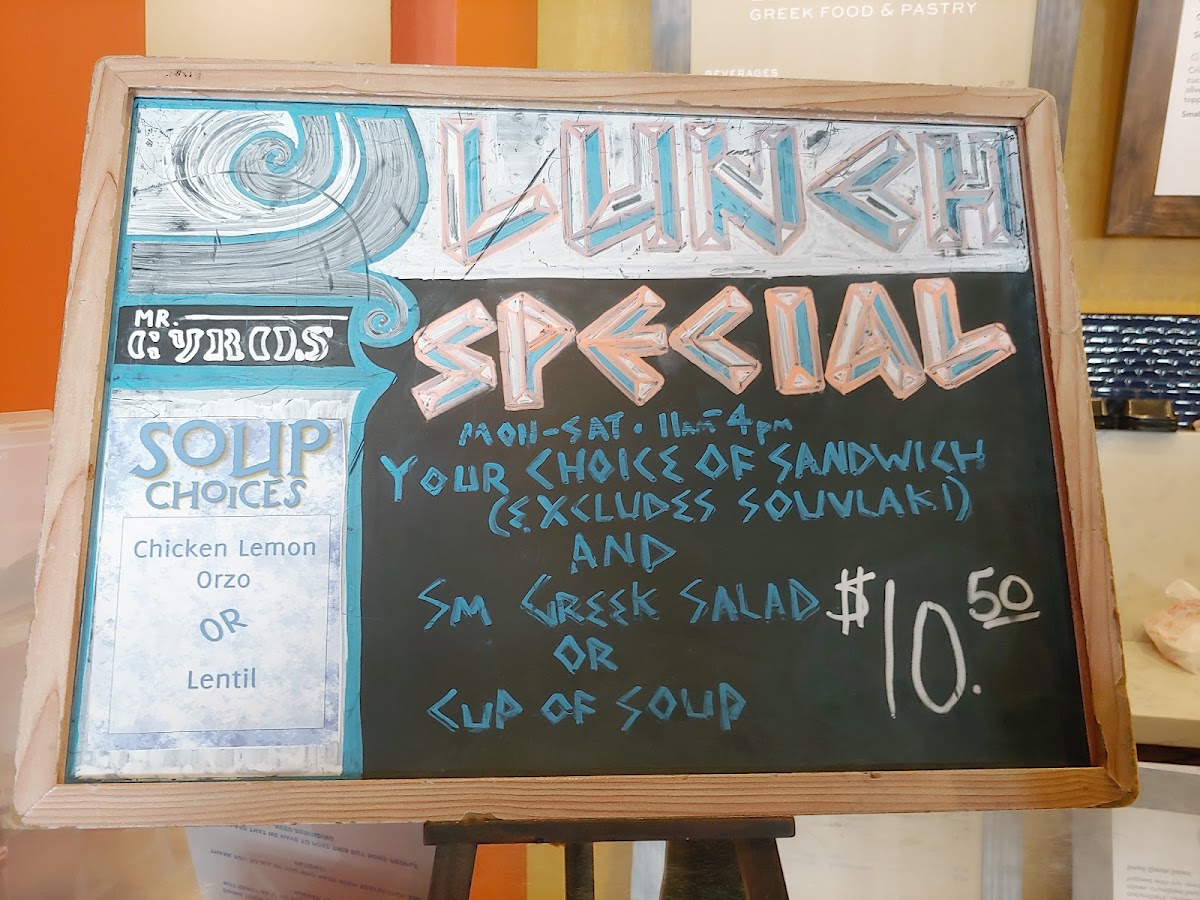 GREEK FOOD & PASTRY
BEVERAGES
LUNCH
SPECIAL
MR.
GYROS
SOUP
CHOICES
Chicken Lemon
Orzo
OR
Lentil
MON-SAT. 11am-4pm
YOUR CHOICE OF SANDWICH
(EXCLUDES SOUVLAKI)
AND
SM GREEK SALAD
OR
CUP OF SOUP
$10.50
Small